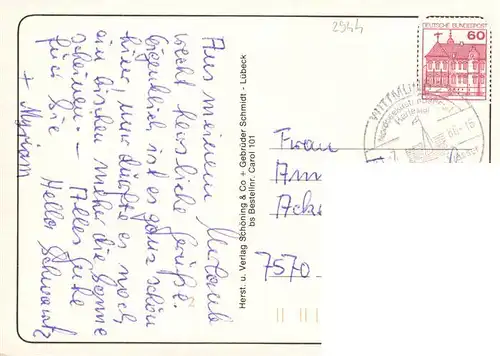 Aus meinem Urlaub
recht herzliche Grüße.
Eigentlich ist es ganz schön
hier, nur dürfte es noch
ein bischen mehr die Sonne
scheinen. – Alles Gute
für Sie Schwartz
+ Myriam
Herst. u. Verlag Schöning & Co + Gebrüder Schmidt - Lübeck
bs Bestellnr. Carol 101
2544
DEUTSCHE BUNDESPOST
60
WITTMUN
Frau
Am
Acke
7570